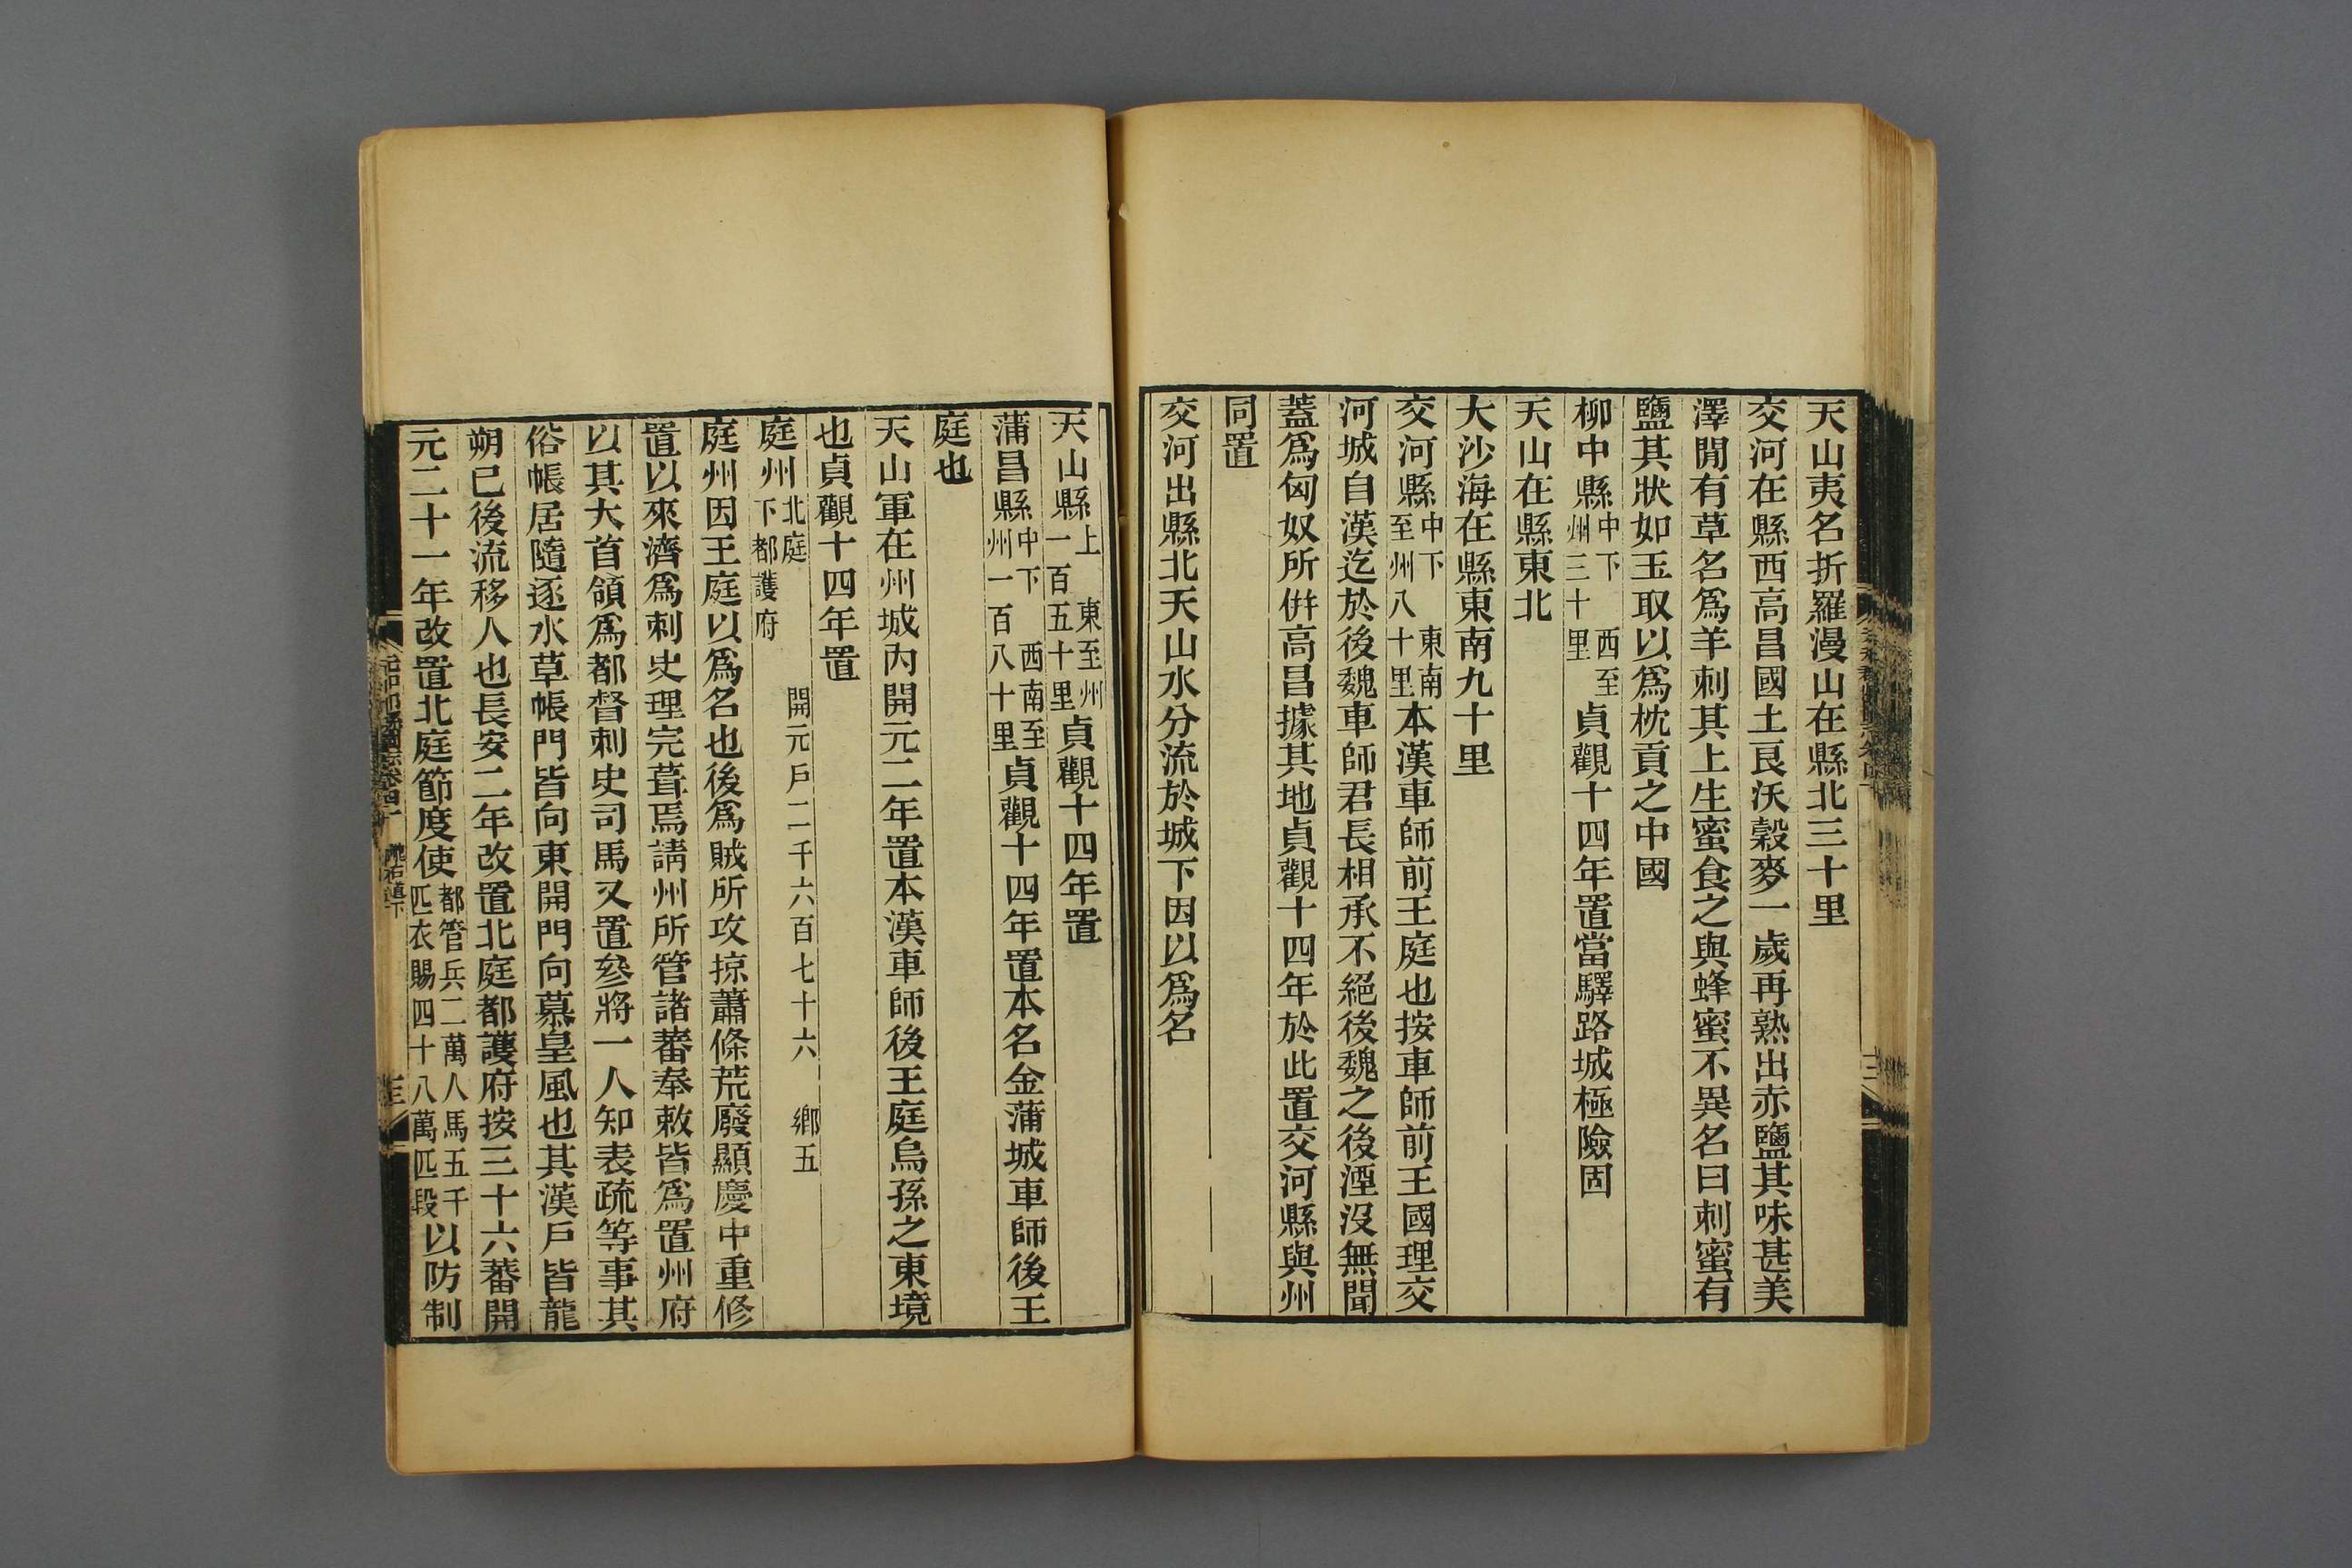 天山夷名折羅漫山在縣北三十里
交河在縣西高昌國土良沃穀麥一歲再熟出赤鹽其味甚美
澤閒有草名爲羊刺其上生蜜食之與蜂蜜不異名曰刺蜜有
鹽其狀如玉取以爲枕貢之中國
柳中縣中下 西至州三十里貞觀十四年置當驛路城極險固
天山在縣東北
大沙海在縣東南九十里
交河縣中下 東南至州八十里本漢車師前王庭也按車師前王國理交
河城自漢迄於後魏車師君長相承不絕後魏之後湮沒無聞
蓋爲匈奴所併高昌據其地貞觀十四年於此置交河縣與州
同置
交河出縣北天山水分流於城下因以爲名
天山縣上 東至州一百五十里貞觀十四年置
蒲昌縣中下 西南至州一百八十里貞觀十四年置本名金蒲城車師後王
庭也
天山軍在州城內開元二年置本漢車師後王庭烏孫之東境
也貞觀十四年置
庭州北庭下都護府 開元戶二千六百七十六 鄉五
庭州因王庭以爲名也後爲賊所攻掠蕭條荒廢顯慶中重修
置以來濟爲刺史理完葺焉請州所管諸蕃奉敕皆爲置州府
以其大首領爲都督刺史司馬又置參將一人知表疏等事其
俗帳居隨逐水草帳門皆向東開門向慕皇風也其漢戶皆龍
朔已後流移人也長安二年改置北庭都護府按三十六蕃開
元二十一年改置北庭節度使都管兵二萬人馬五千匹衣賜四十八萬匹段以防制
元和郡縣圖志卷四十 隴右道下